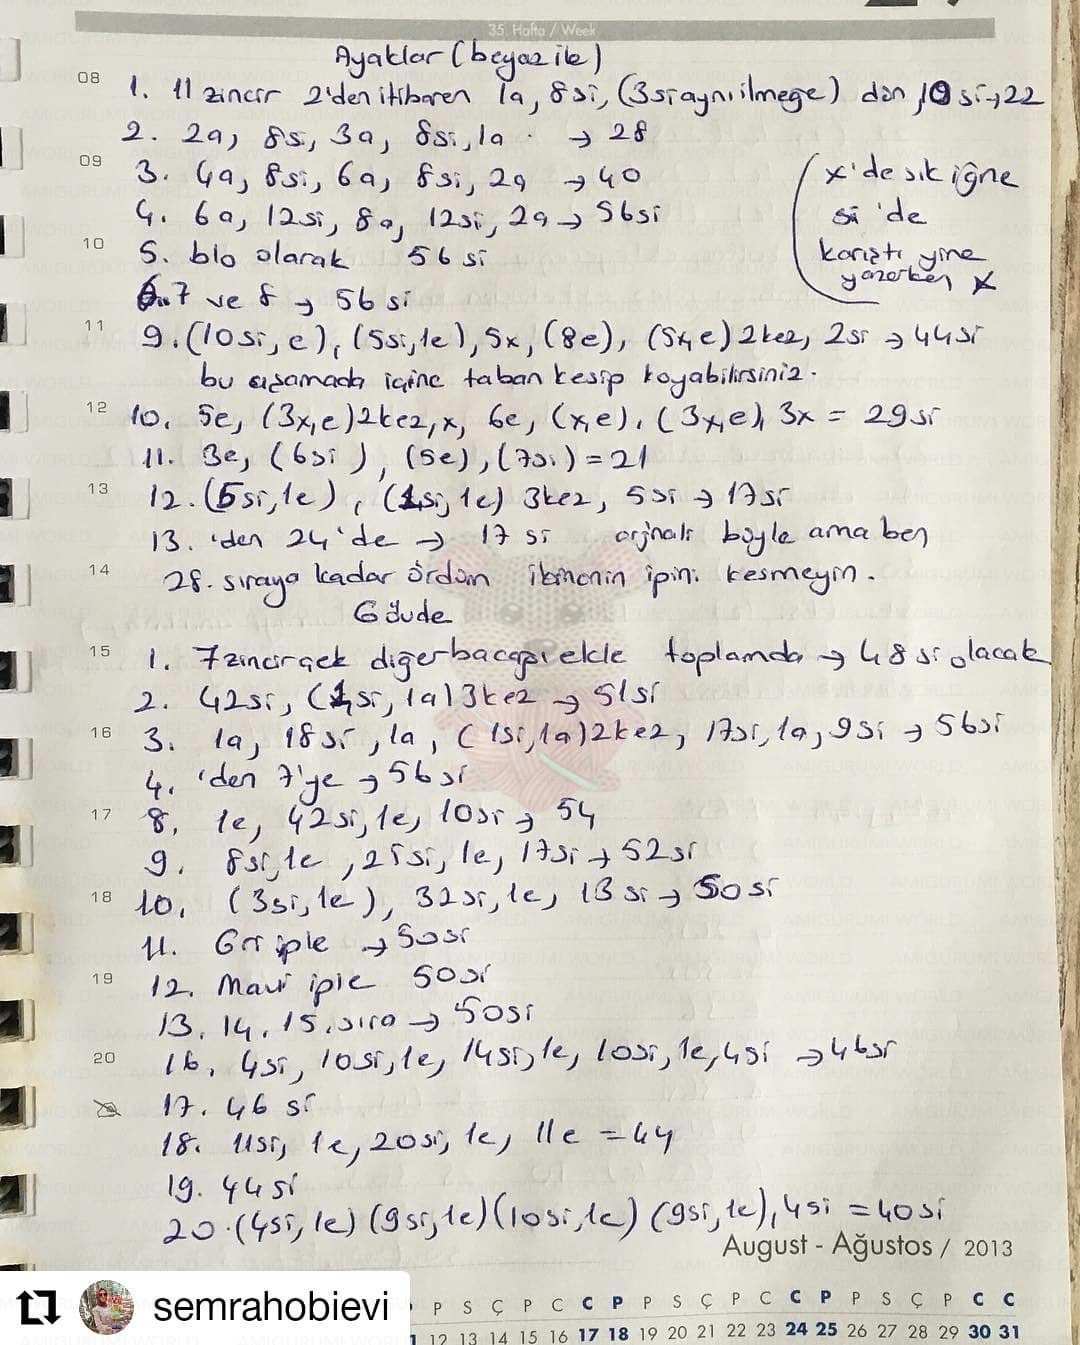 35. Hafta / Week
Ayaklar (beyaz ile)
08
1. 11 zincir 2'den itibaren 1a, 8si, (3si aynı ilmeğe) dön, 10si→22
2. 2a, 8si, 3a, 8si, 1a → 28
09
3. 4a, 8si, 6a, 8si, 2a → 40
x'de sık iğne
4. 6a, 12si, 8a, 12si, 2a → 56si
si 'de
10
5. blo olarak 56 si
karıştı yine
yazarken x
6.7 ve 8 → 56 si
11
9. (10si, e), (5si, 1e), 5x, (8e), (5x, e) 2kez, 2si → 44si
bu aşamada içine taban kesip koyabilirsiniz.
12
10. 5e, (3x, e) 2kez, x, 6e, (x, e), (3x, e), 3x = 29si
11. 3e, (6si), (5e), (7si) = 21
13
12. (5si, 1e), (1si, 1e) 3kez, 5si → 17si
13. 'den 24'de → 17 si orjinali böyle ama ben
14
28. sıraya kadar ördüm ikincinin ipini kesmeyin.
Gövde
15
1. 7 zincir çek diğer bacağı ekle toplamda → 48 si olacak
2. 42si, (1si, 1a) 3kez → 51si
16
3. 1a, 18si, 1a, (1si, 1a) 2kez, 17si, 1a, 9si → 56si
4. 'den 7'ye → 56 si
17
8. 1e, 42si, 1e, 10si → 54
9. 8si, 1e, 25si, 1e, 17si → 52si
18
10. (3si, 1e), 32si, 1e, 13si → 50si
11. Gri iple → 50si
19
12. Mavi iple 50si
13. 14. 15. sıra → 50si
20
16. 4si, 10si, 1e, 14si, 1e, 10si, 1e, 4si → 46si
17. 46 si
18. 11si, 1e, 20si, 1e, 11e = 44
19. 44 si
20. (4si, 1e) (9si, 1e) (10si, 1e) (9si, 1e), 4si = 40si
August - Ağustos / 2013
semrahobievi
P S Ç P C C P P S Ç P C C P P S Ç P C C
11 12 13 14 15 16 17 18 19 20 21 22 23 24 25 26 27 28 29 30 31